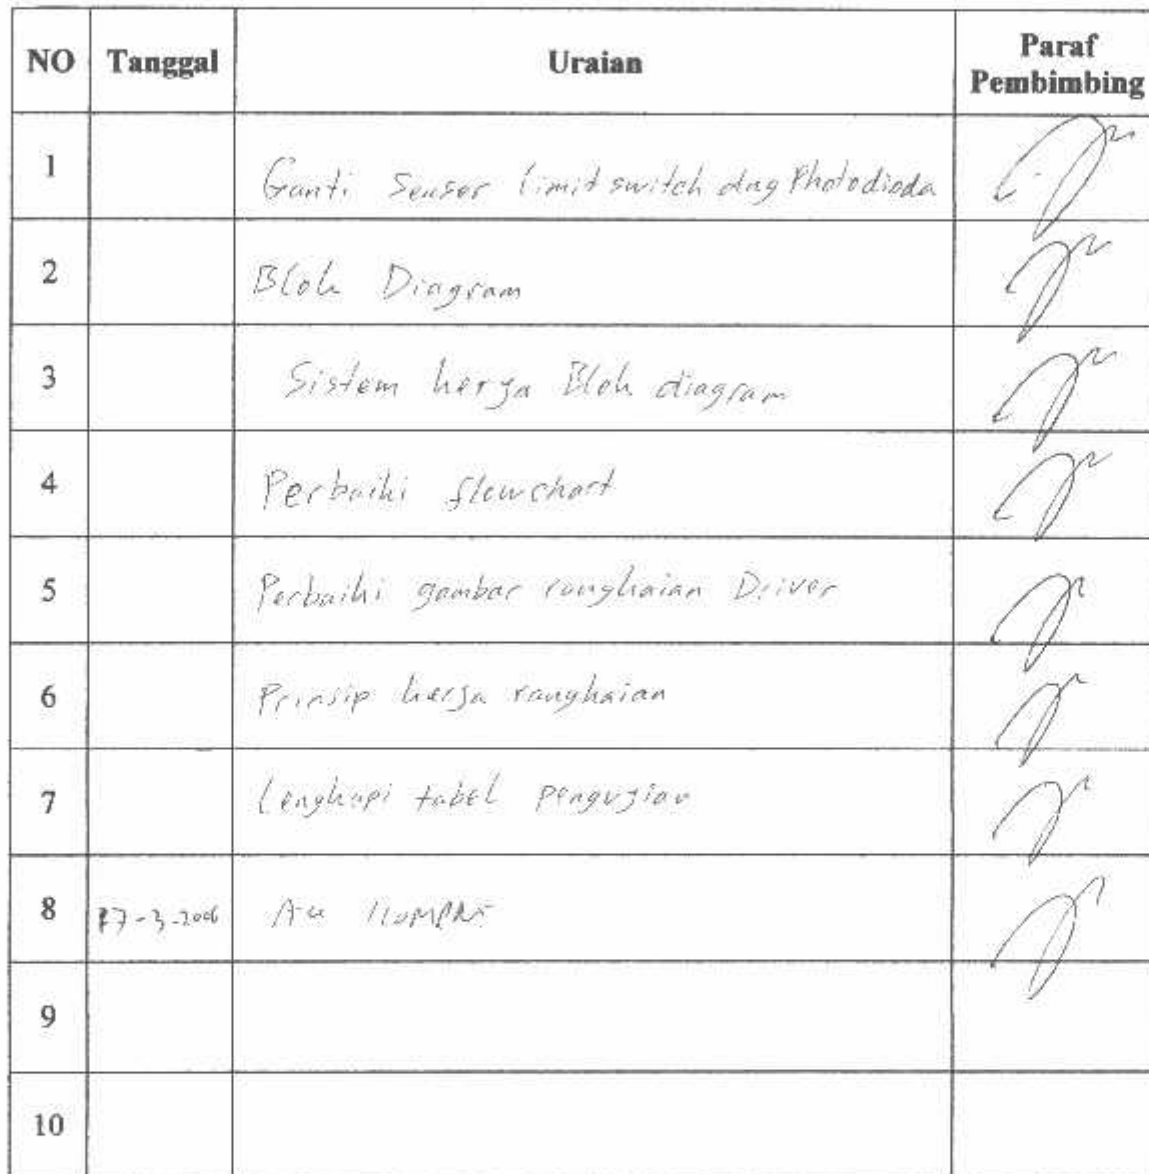 NO Tanggal Uraian Paraf Pembimbing
1 Ganti Sensor limit switch dng Photodioda
2 Blok Diagram
3 Sistem kerja Blok diagram
4 Perbaiki flowchart
5 Perbaiki gambar rangkaian Driver
6 Prinsip kerja rangkaian
7 Lengkapi tabel pengujian
8 -3-2006
9
10